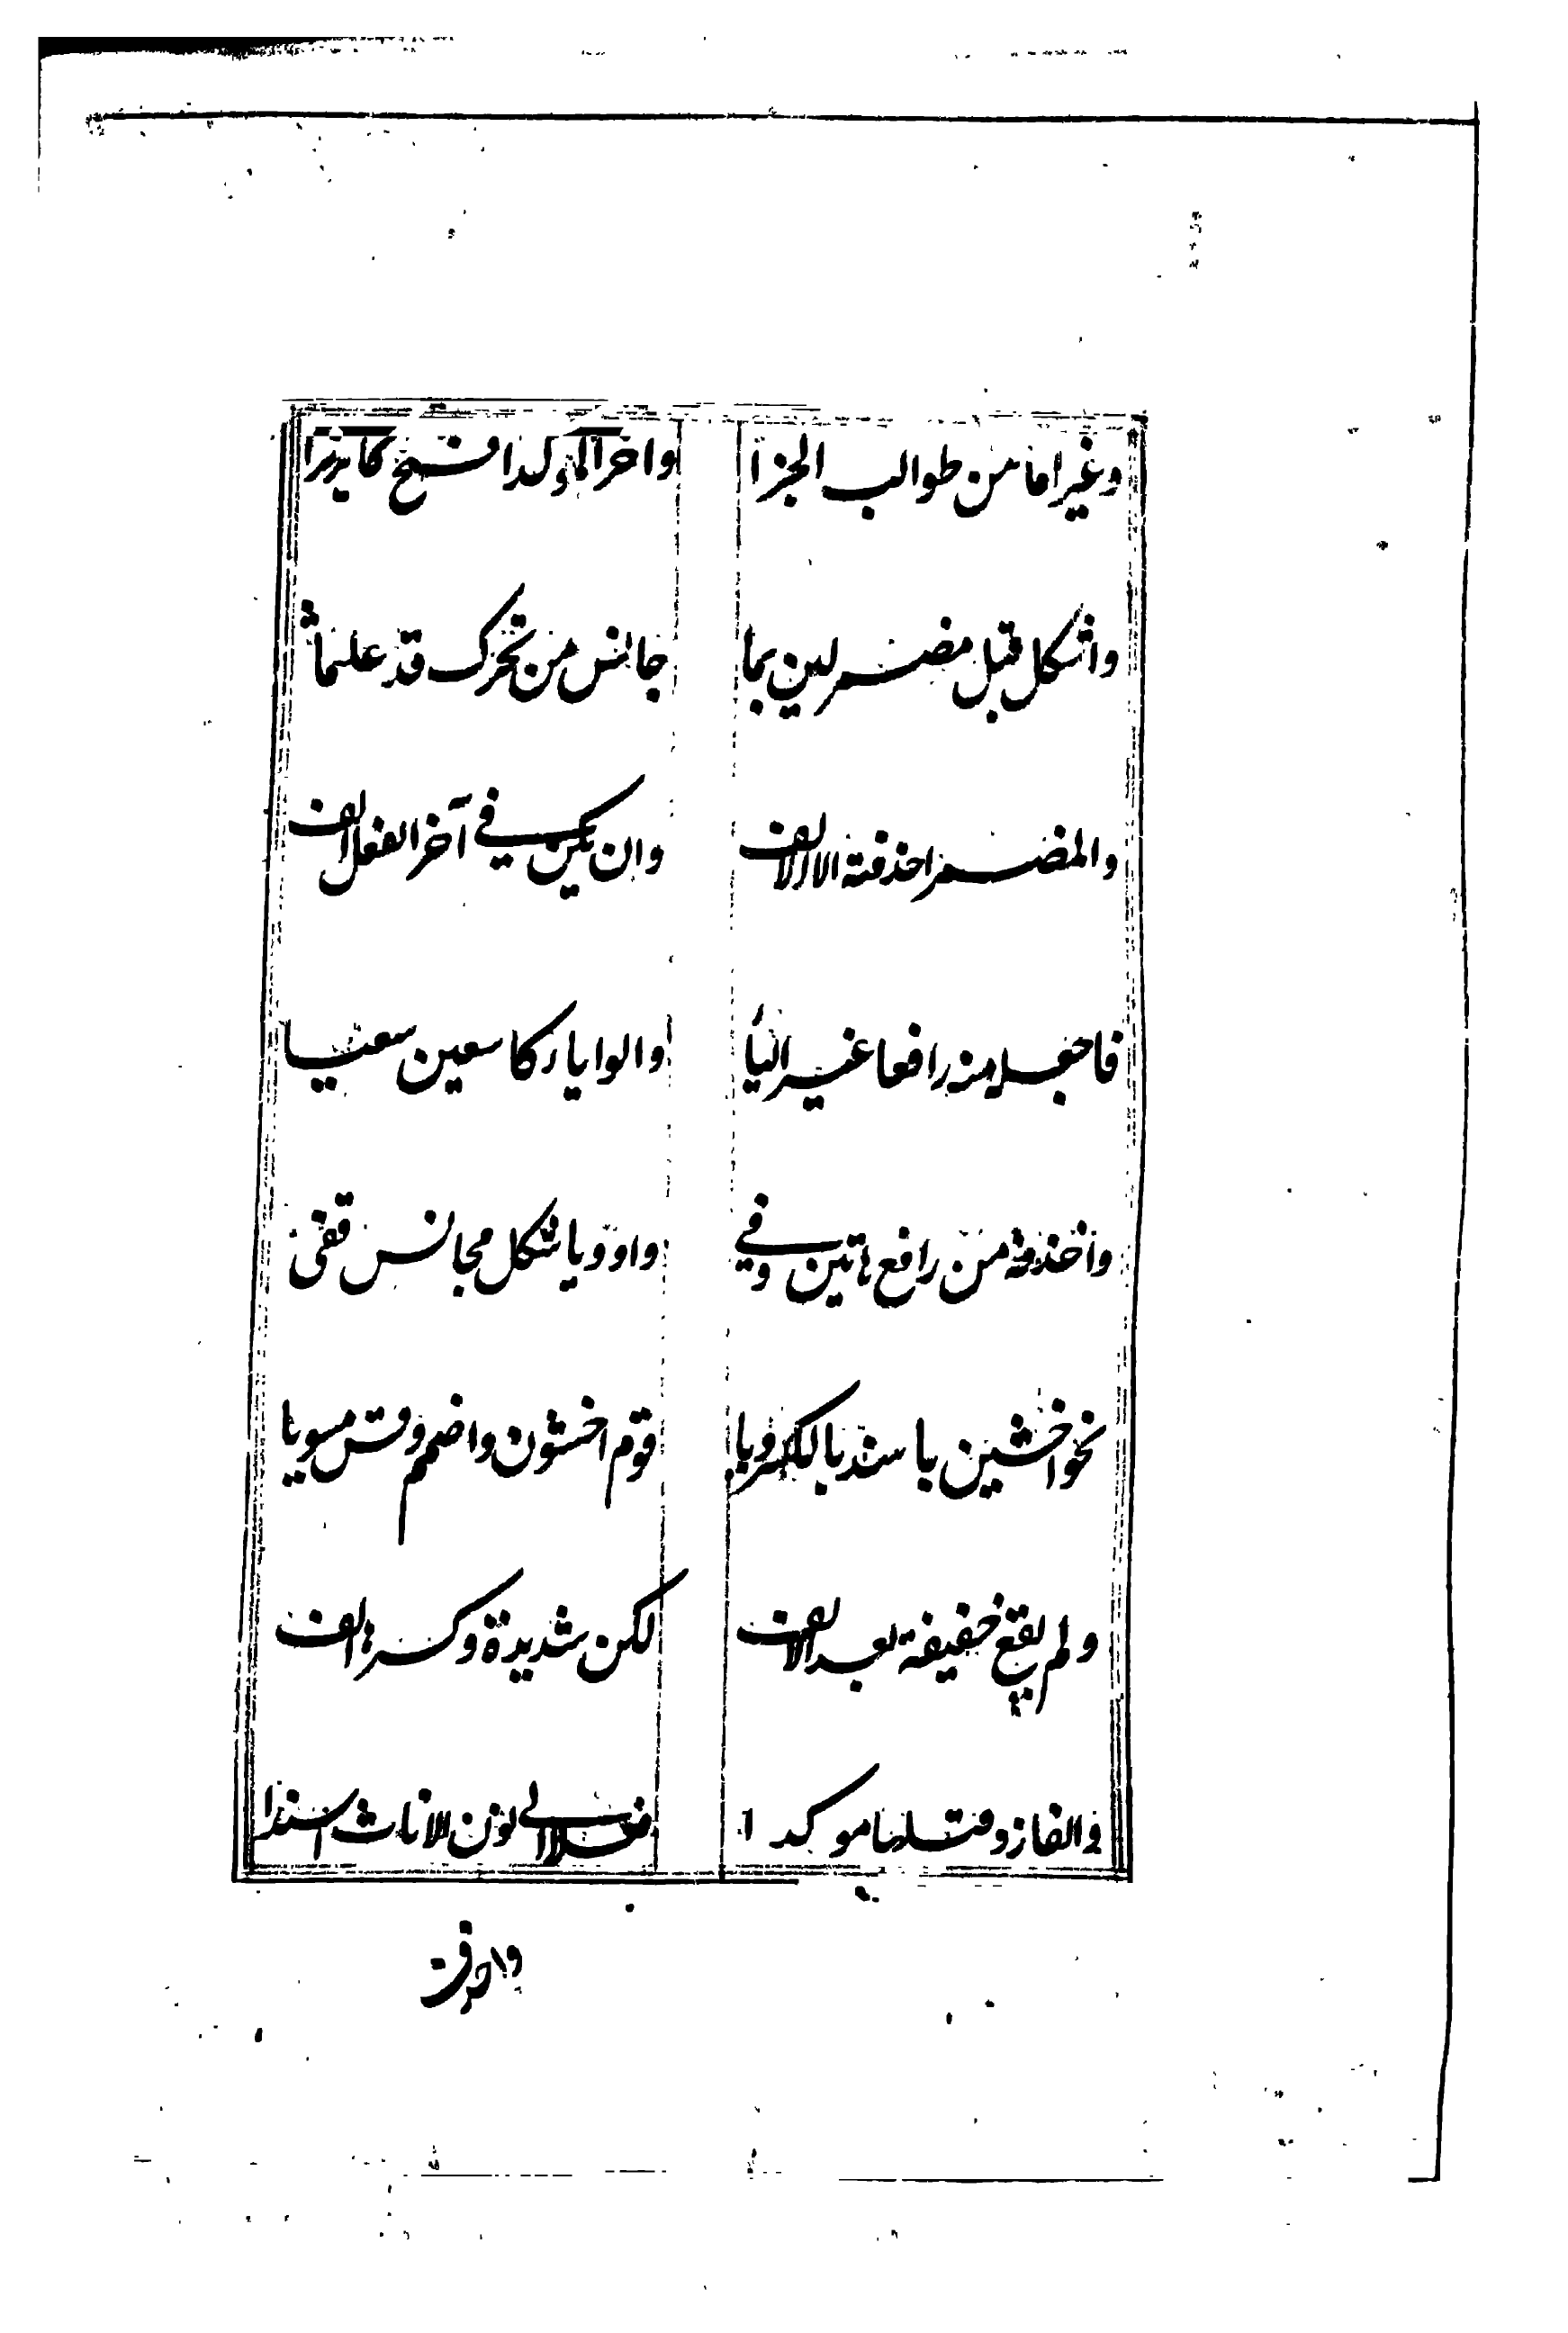 وغير اما من طوالب الجزا واخر المؤكد افتح كابرزا
واشكله قبل مضمر لين بما جانس من تحرك قد علما
والمضمر احذفنه الا الالف وان يكن في آخر الفعل الف
فاجعله منه رافعا غير اليا والواو ياء كاسعين سعيا
واحذفه من رافع هاتين وفي واو ويا شكل مجانس قفى
نحو اخشين يا هند بالكسر ويا قوم اخشون واضمم وقس مسويا
ولم تقع خفيفة بعد الالف لكن شديدة وكسرها الف
والفا زد قبلها موكدا فعلا الى نون الاناث اسندا
واحذف